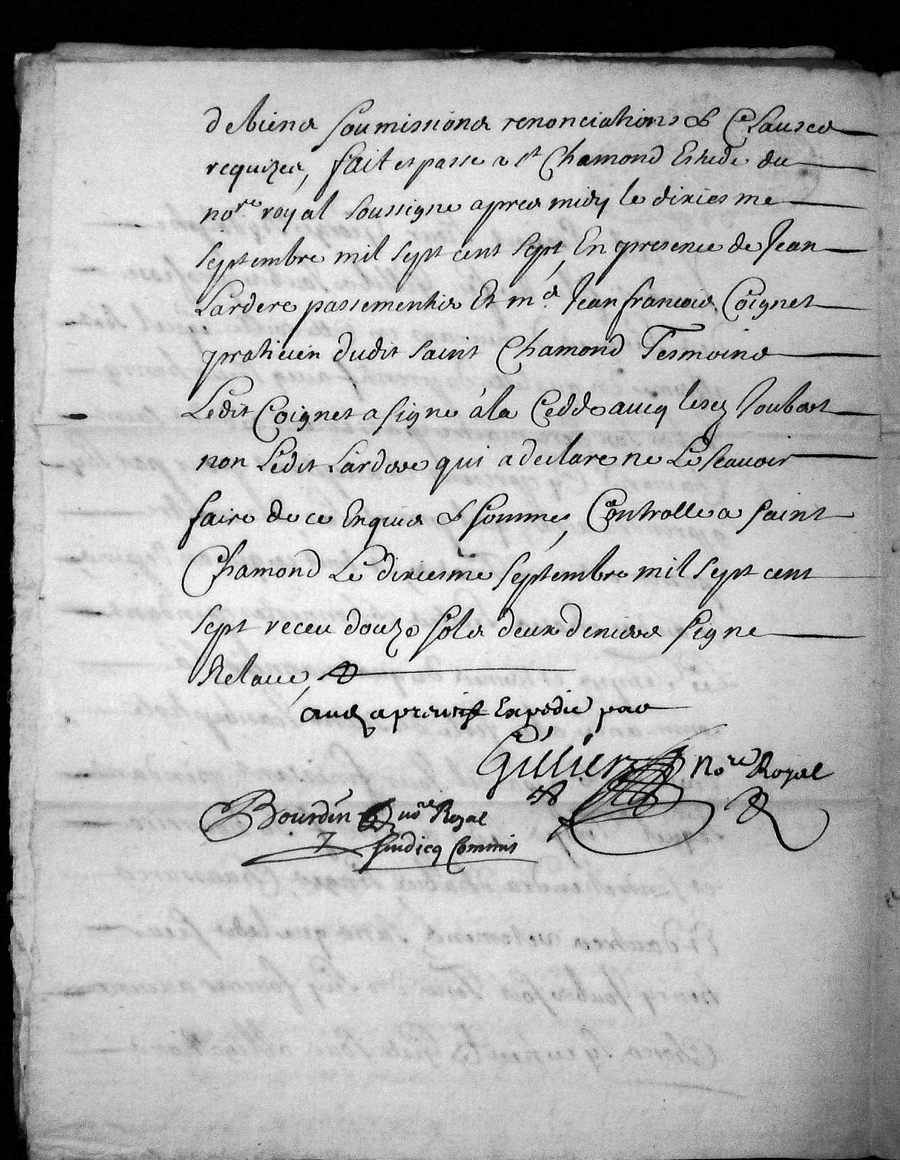 debiens soumissions renonciations & Clauses
requizes, fait et passe a st Chamond Estude du
nore royal soussigne apres midy le dixiesme
septembre mil sept cent sept, En presence de Jean
Lardere passementier Et me Jean francois Coignet
praticien dudit saint Chamond Tesmoins
Ledit Coignet a signe a la Cedde avecq lesd Joubert
non Ledit Lardere qui a declare ne Le scavoir
faire de ce Enquis & somme, Controlle a saint
Chamond Le dixiesme septembre mil sept cent
sept receu douze sols deux deniers signe
Relave,
Expedie par
nore Royal
Bourdin nore Royal
sindicq Commis